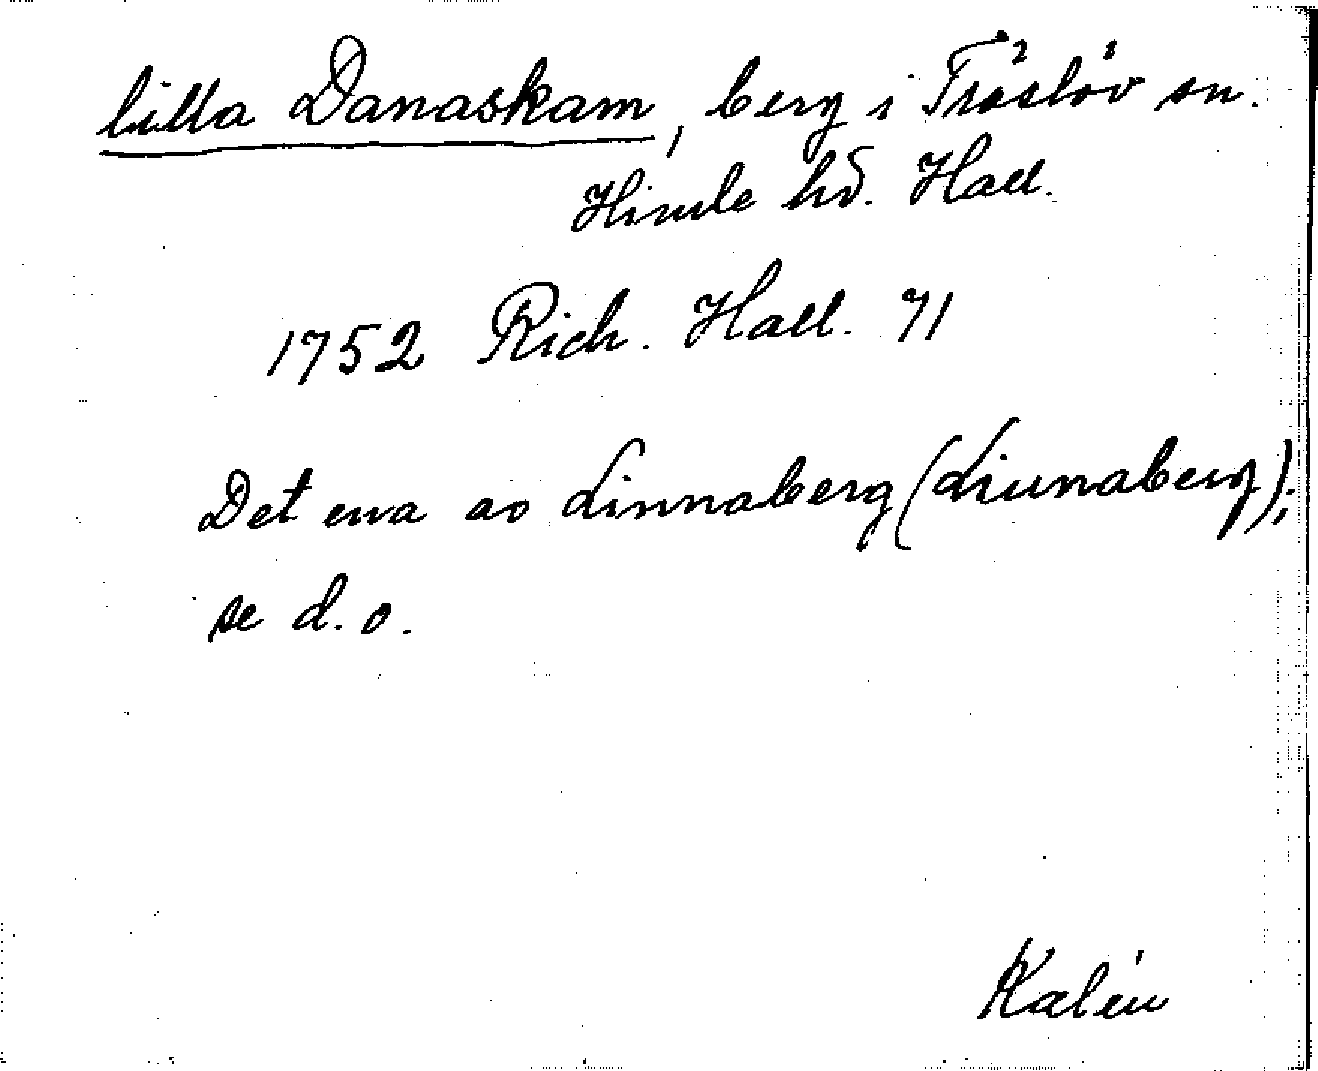 lilla Danaskam, berg i Träslöv sn.
Himle hd. Hall.
1752 Rich. Hall. 71
Det ena av Linnaberg (Liunaberg);
se d. o.
Kalén